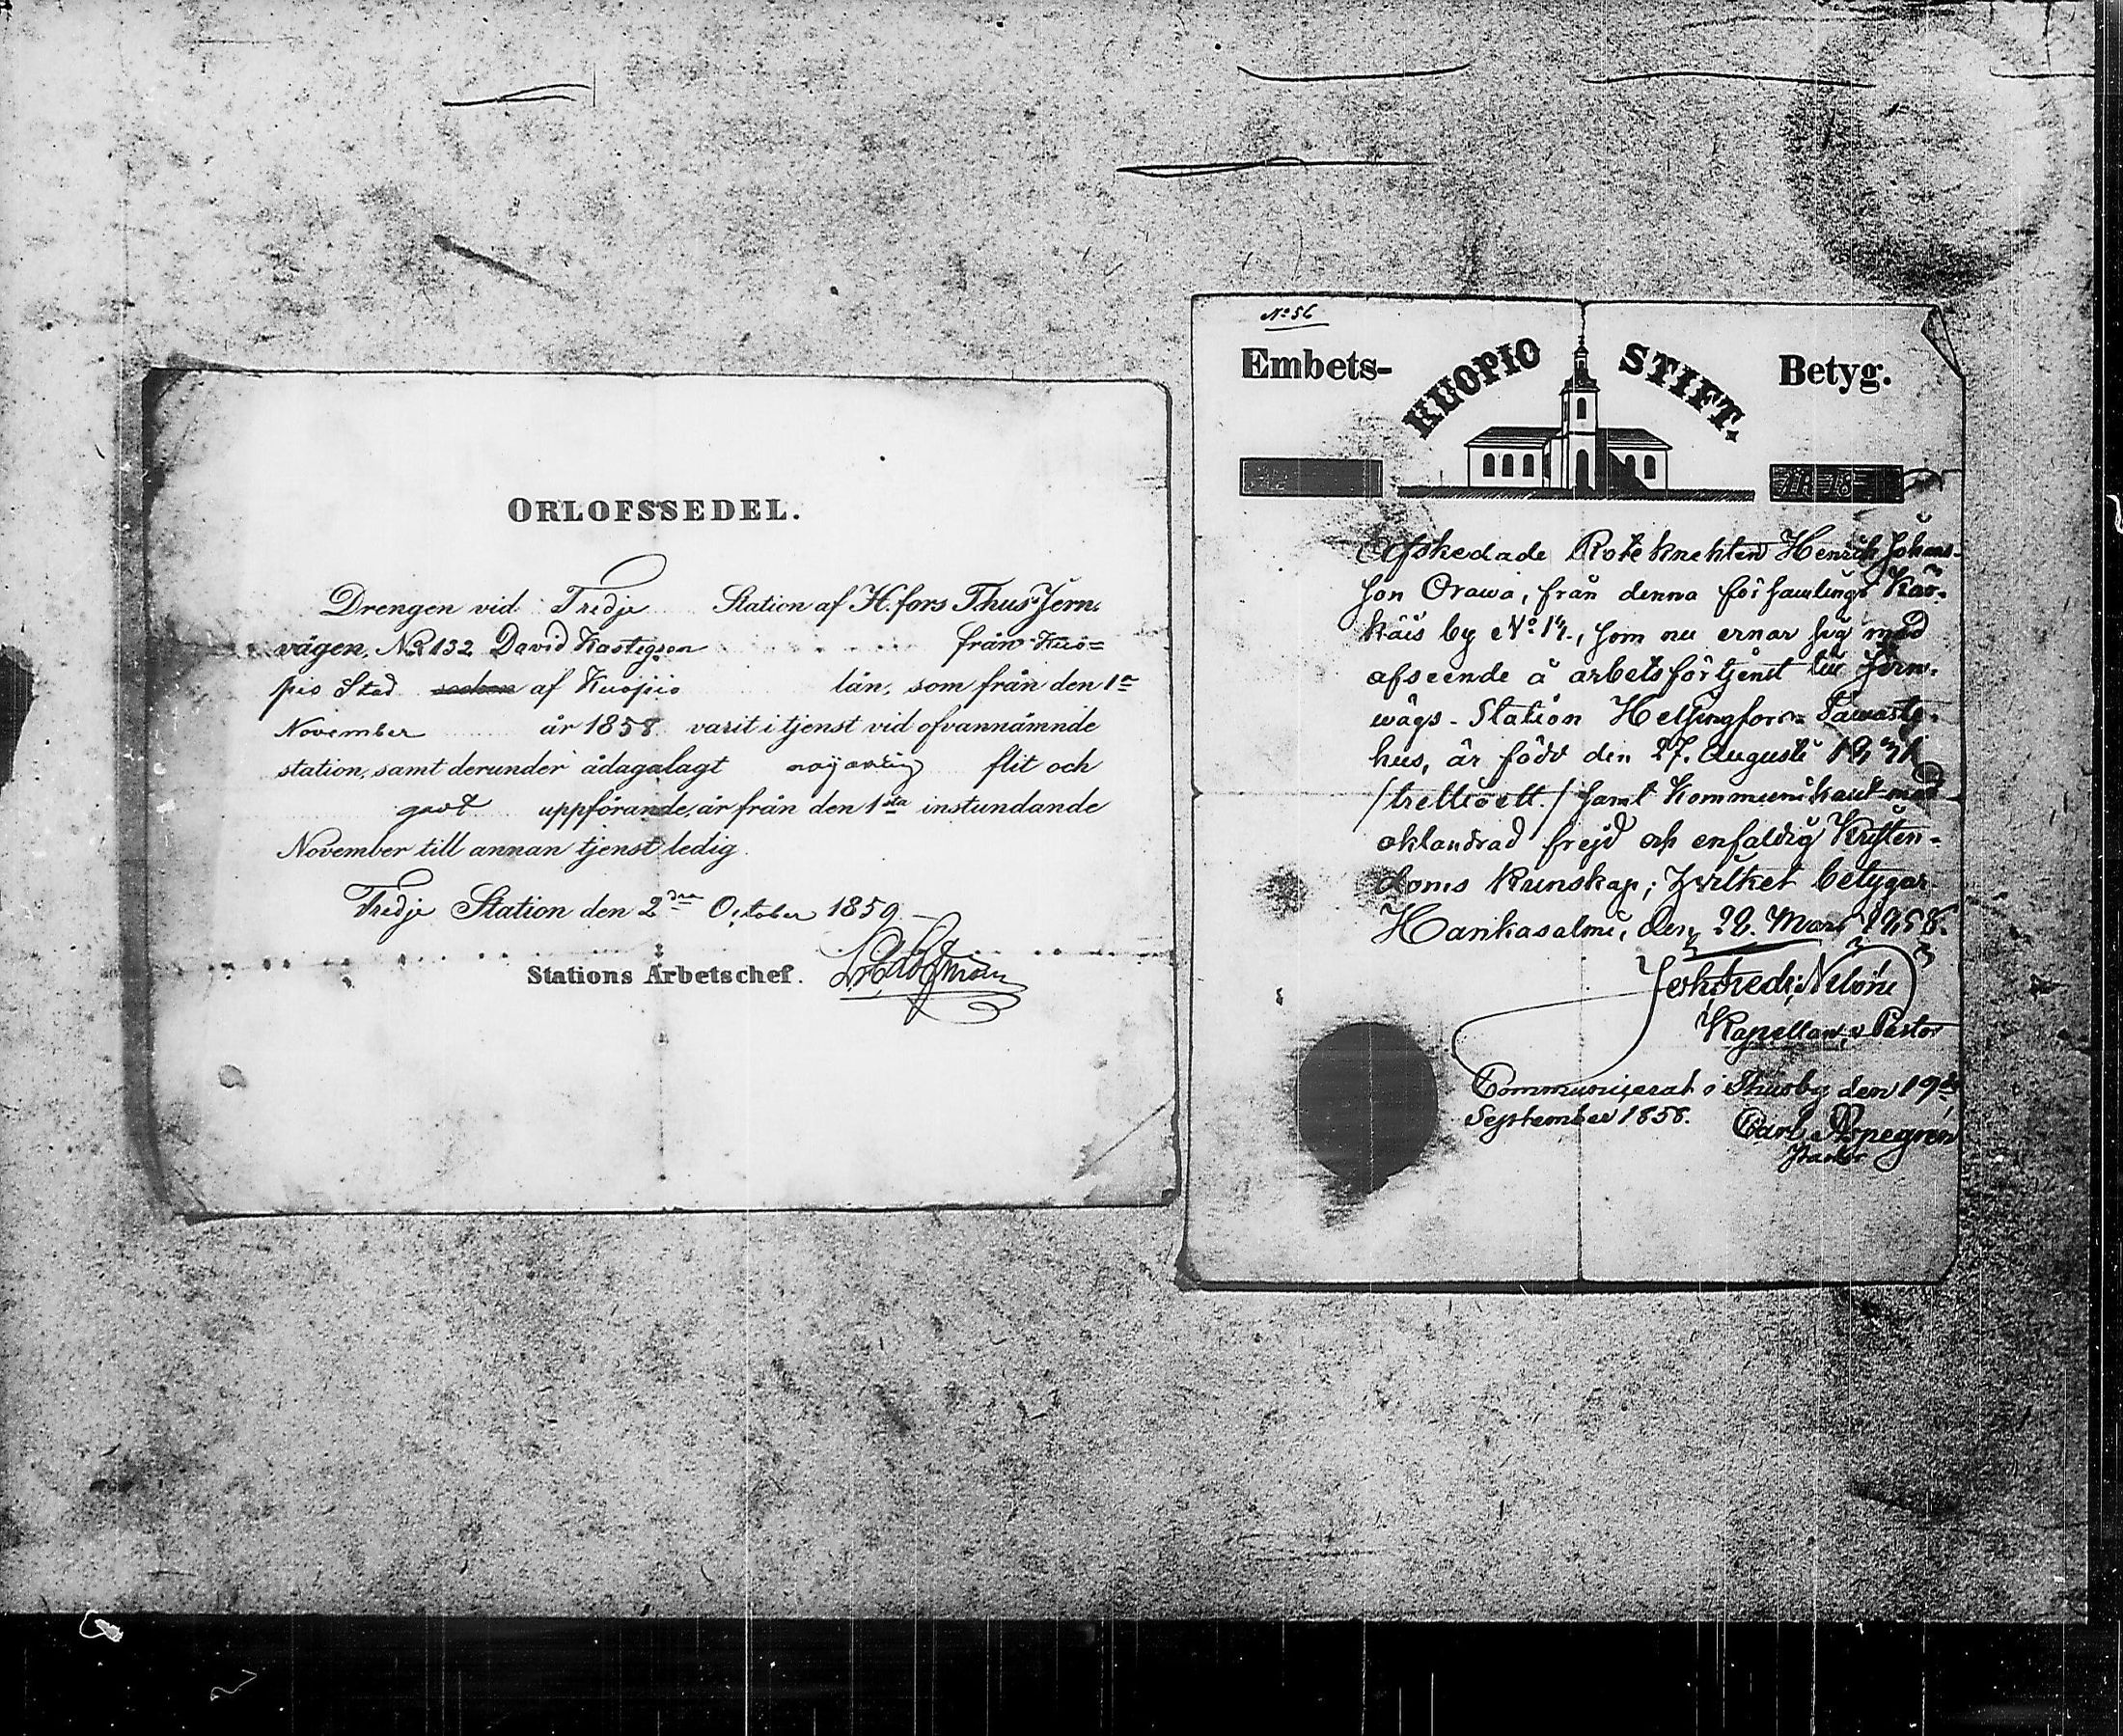 ORLOFSSEDEL.
Drengen vid Tredje Station af H.fors Thus Jern-
vägen, No 132 David Kastegren från Kuo=
pio Stad socken af Kuopio län, som från den 1a
November år 1858 varit i tjenst vid ofvannämnde
station, samt derunder ådagalagt flit och
godt uppförande, är från den 1sta instundande
November till annan tjenst ledig.
Tredje Station den 2dra October 1859
Stations Arbetschef.
No 56
Embets- KUOPIO STIFT. Betyg.
Afskedade Roteknekten Henrik Johans-
son Orawa, från denna församlings Kär-
käis by No 14., som nu ernar sig med
afseende å arbetsförtjenst till Jern-
wägs-Station Helsingfors Tawaste-
hus, är född den 27. Augusti 1831
/trettioett./ samt Kommunikant med
oklandrad frejd och enfaldig Kristen-
doms kunskap; hwilket betygar.
Hankasalmi, den 22. Mars 1858.
Kapellan, v. Pastor
Communicerat i Thusby den 19de
September 1858. Carl
Pastor